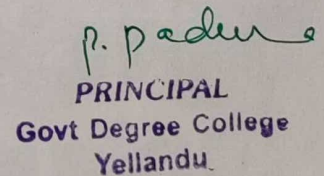 PRINCIPAL
Govt Degree College
Yellandu